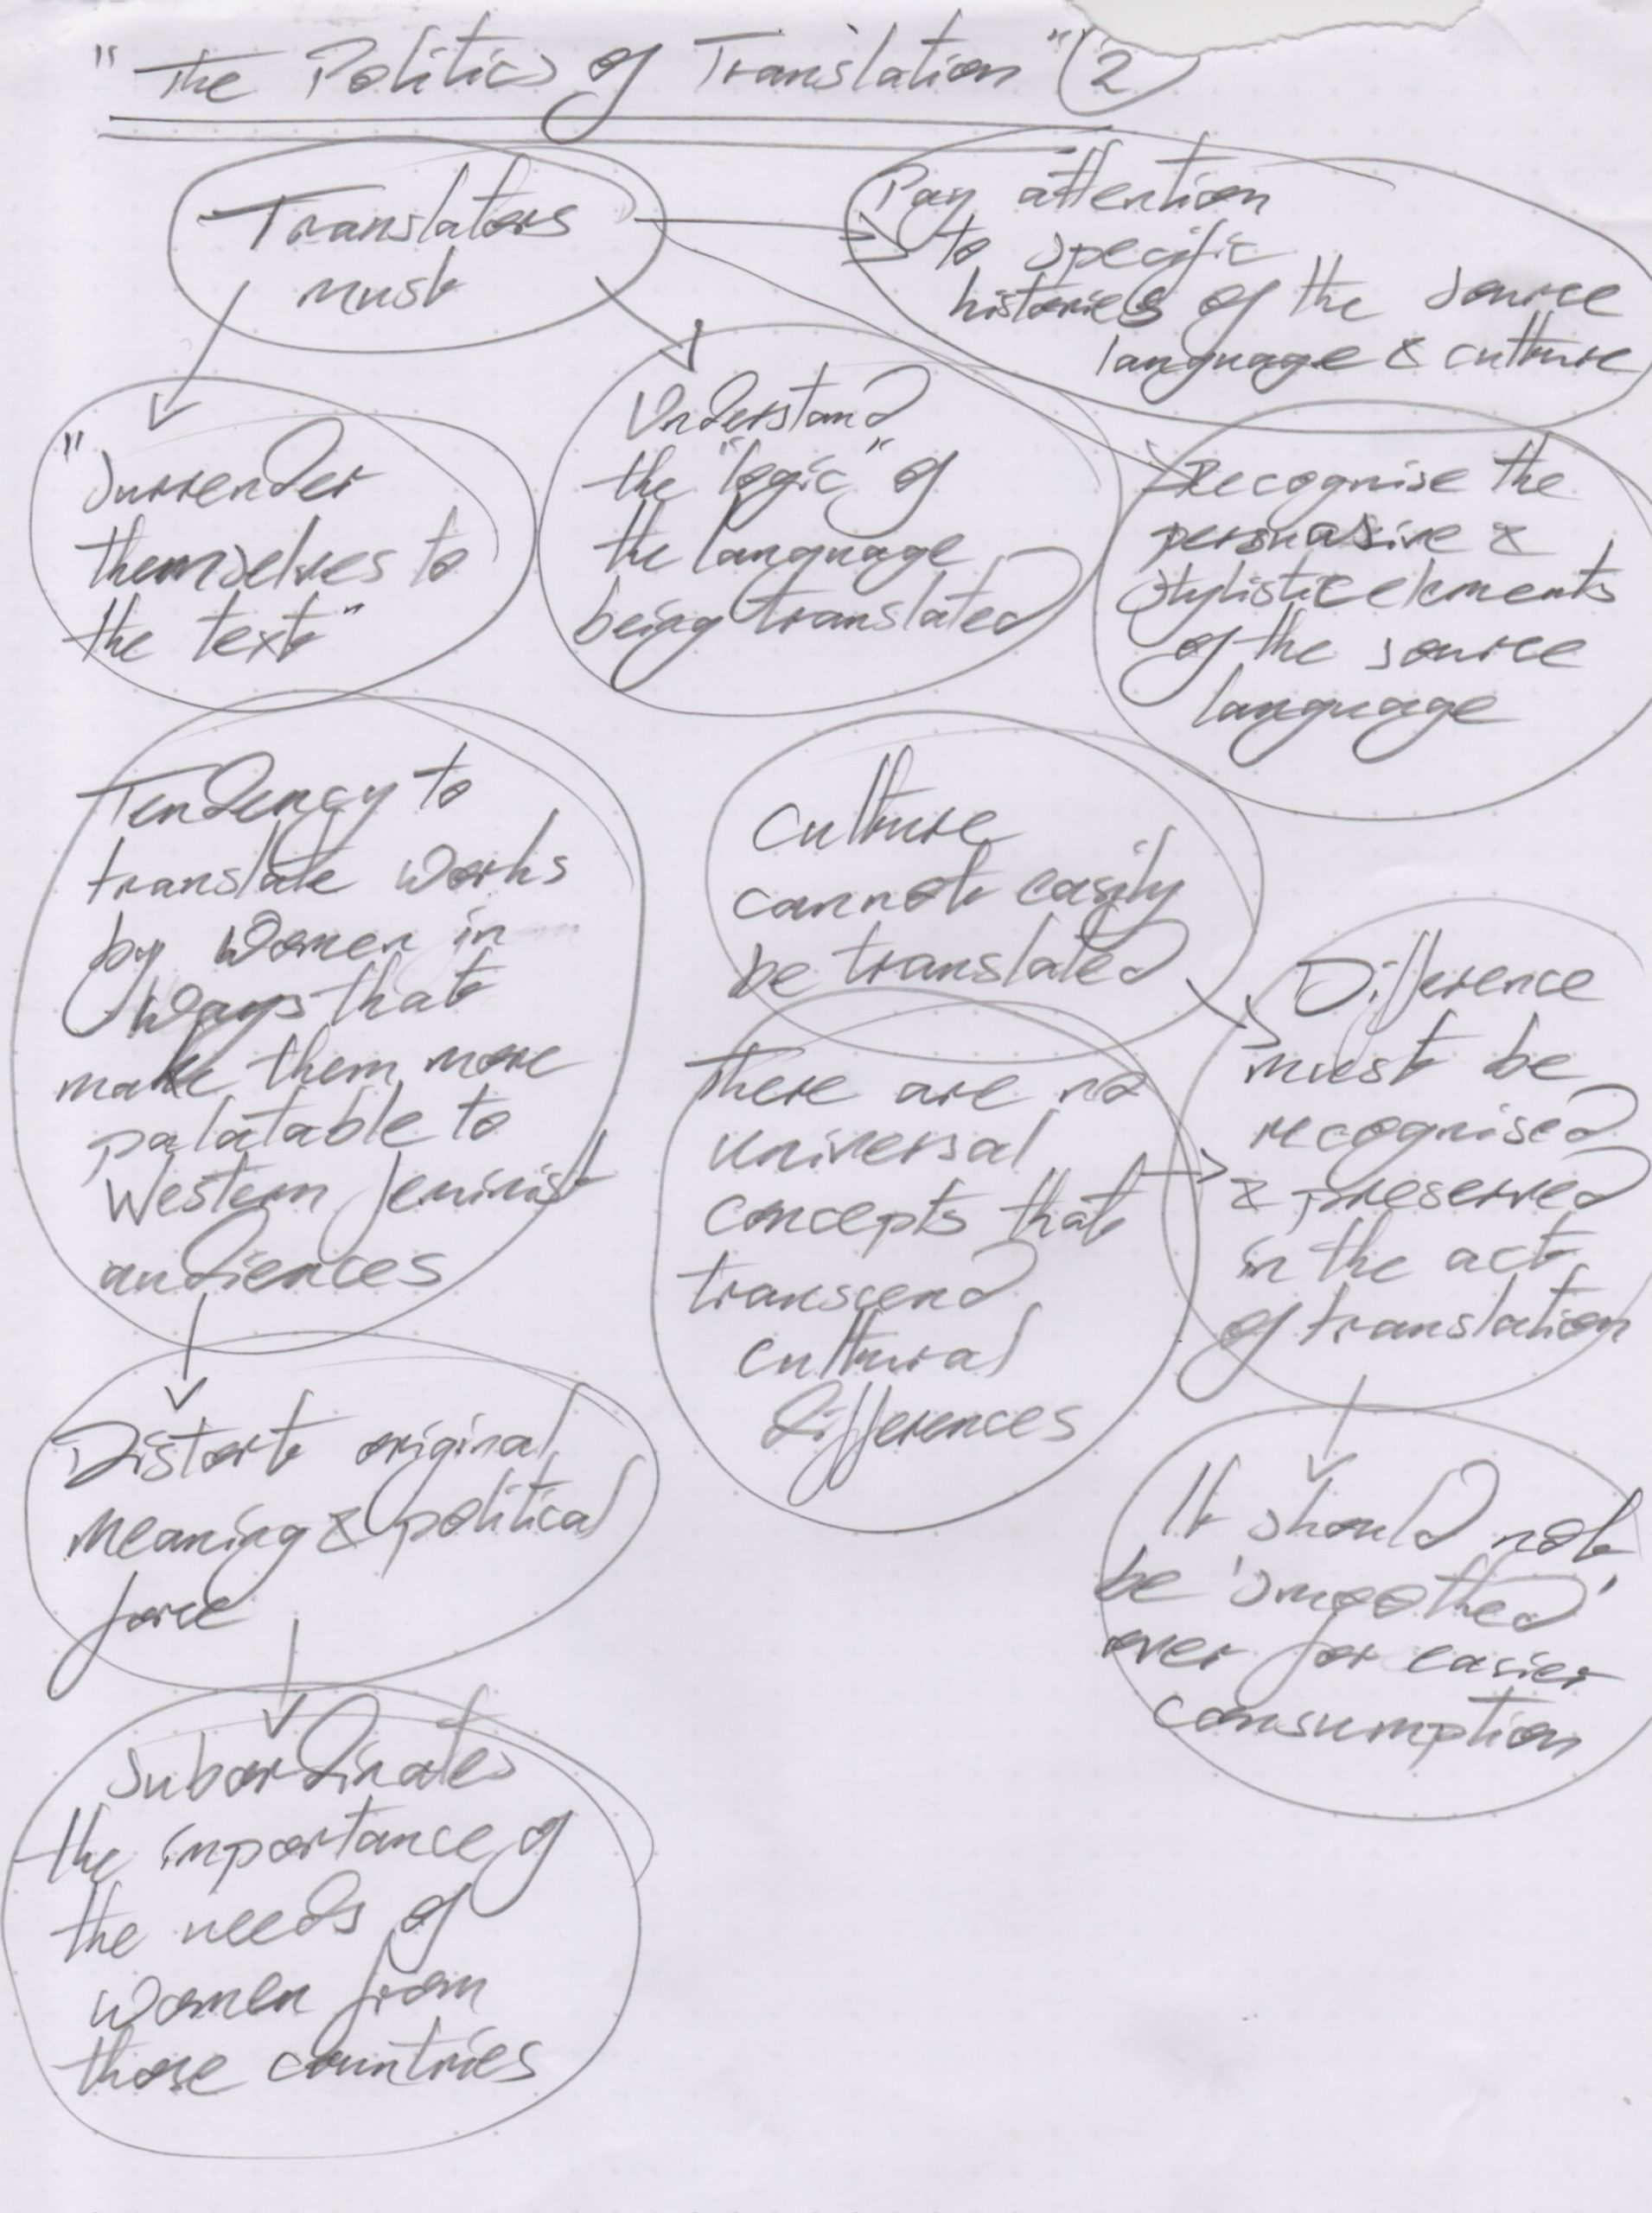 "The Politics of Translation" (2)
Translators
must
Pay attention
to specific
histories of the source
language & culture
"Surrender
themselves to
the text"
Understand
the "logic" of
the language
being translated
Recognise the
persuasive &
stylistic elements
of the source
language
Tendency to
translate works
by women in
ways that
make them more
palatable to
Western feminist
audiences
Culture
cannot easily
be translated
There are no
universal
concepts that
transcend
cultural
differences
Difference
must be
recognised
& preserved
in the act
of translation
Distort original
meaning & political
force
It should not
be 'smoothed'
over for easier
consumption
Subordinates
the importance of
the needs of
women from
those countries